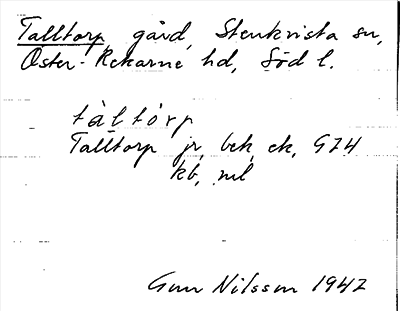 Talltorp, gård, Stenkvista sn,
Öster-Rekarne hd, Söd l.
tàltórp
Talltorp jr, bek, ek, G74
kb, ml
Gun Nilsson 1947